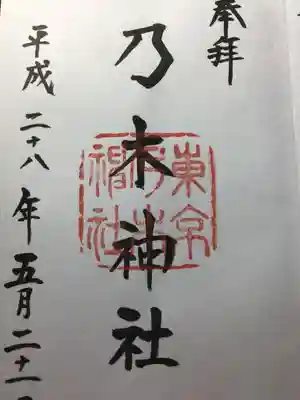 奉拝
乃木神社
東京
乃木
神社
平成二十八年五月二十一日